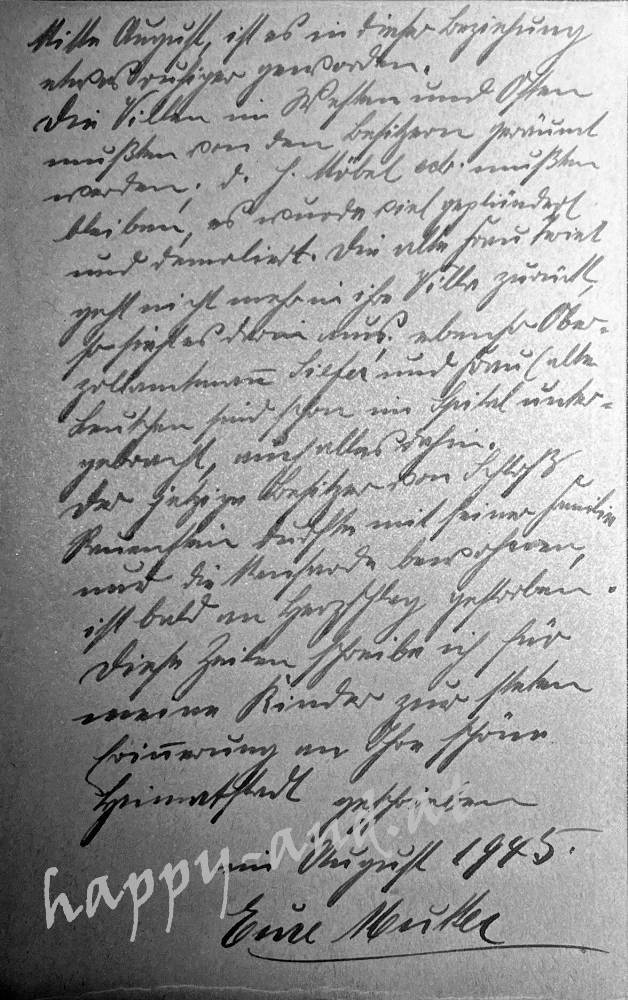 Mitte August, ist es in dieser Beziehung
etwas ruhiger geworden.
Die Villen im Westen und Osten
mußten von den Besitzern geräumt
werden, d. h. Möbel etc. mußten
bleiben, es wurde viel geplündert
und demoliert. Die alte Frau
geht nicht mehr in ihre Villa zurück,
so sieht es darin aus. ebenso Ober-
zollamtmann und Frau (alte
Leutchen sind schon im Spital unter-
gebracht, auch alles dahin.
Der jetzige Besitzer von Schloß
Rauenstein durfte mit seiner Familie
nur die Mansarde bewohnen,
ist bald an Herzschlag gestorben.
Diese Zeilen schreibe ich für
meine Kinder zur steten
Erinnerung an Ihre schöne
Heimatstadt geschrieben
im August 1945.
Eure Mutter
happy-and.at